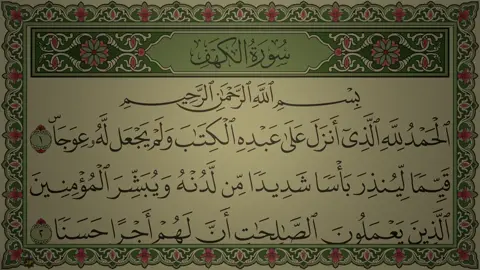 سُورَةُ الْكَهْفِ
بِسْمِ اللَّهِ الرَّحْمَٰنِ الرَّحِيمِ
الْحَمْدُ لِلَّهِ الَّذِىٓ أَنزَلَ عَلَىٰ عَبْدِهِ الْكِتَٰبَ وَلَمْ يَجْعَل لَّهُۥ عِوَجَاۜ ١
قَيِّمًا لِّيُنذِرَ بَأْسًا شَدِيدًا مِّن لَّدُنْهُ وَيُبَشِّرَ الْمُؤْمِنِينَ
الَّذِينَ يَعْمَلُونَ الصَّٰلِحَٰتِ أَنَّ لَهُمْ أَجْرًا حَسَنًا ٢